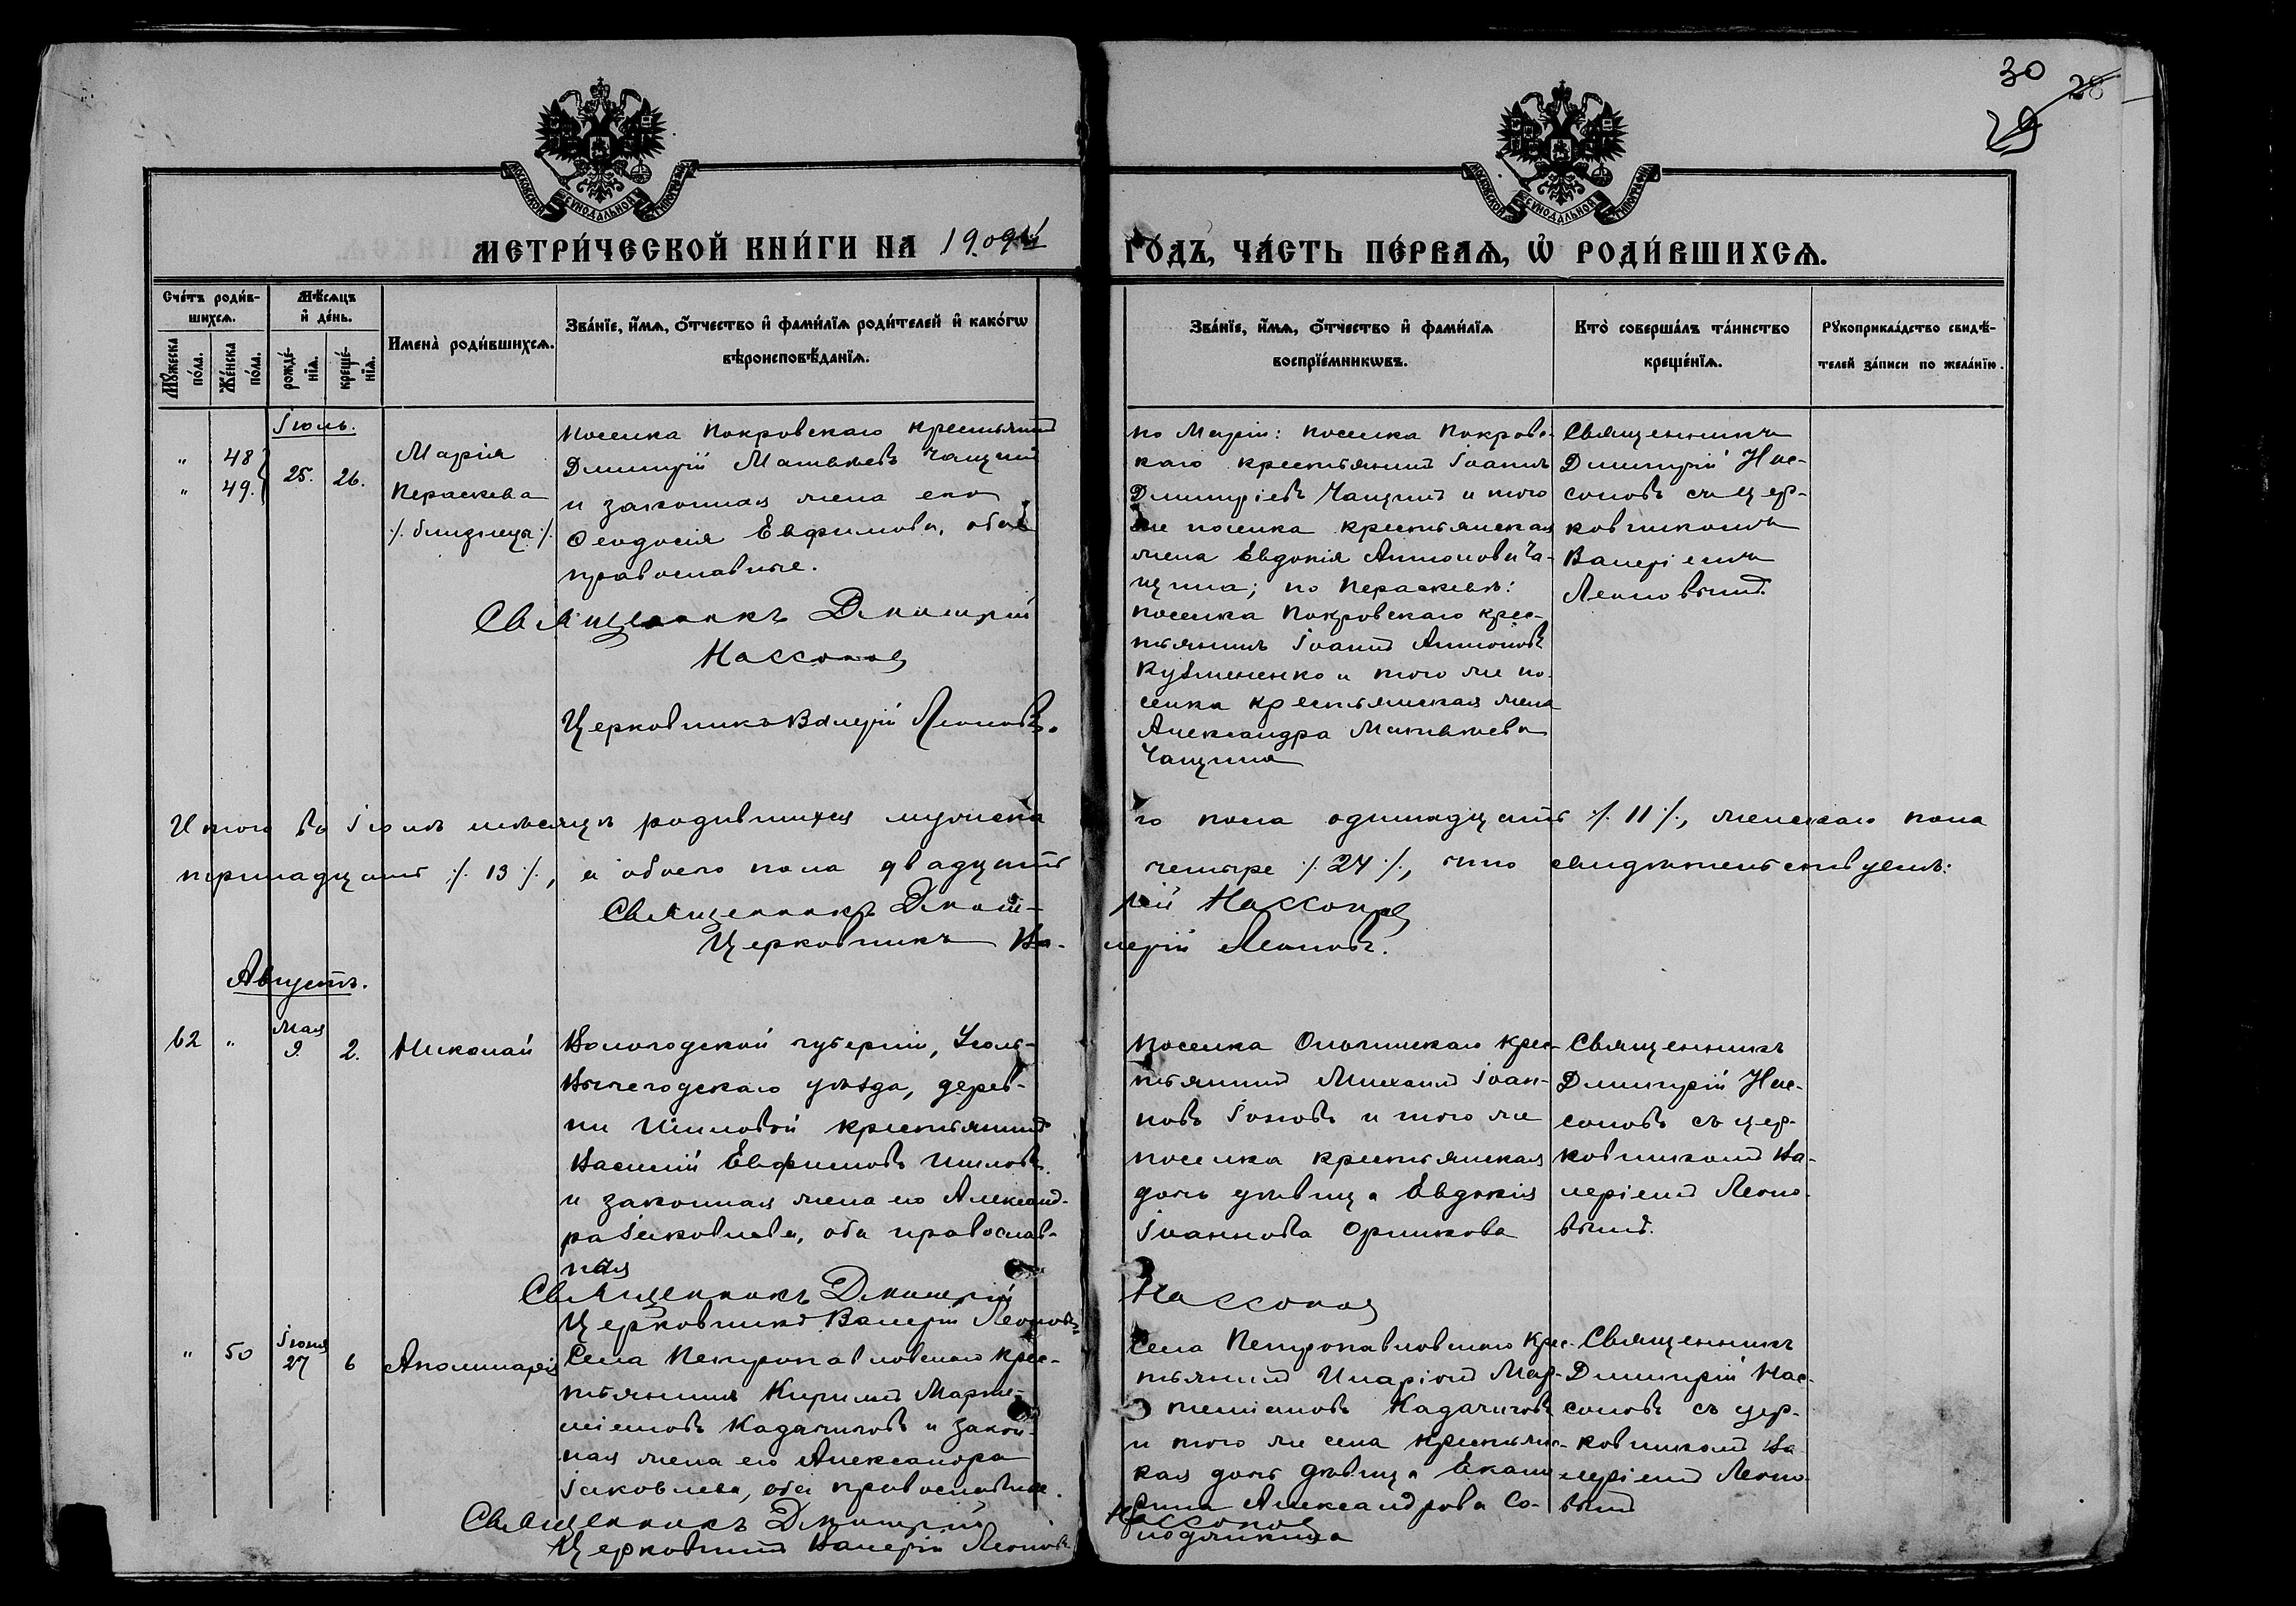 30
28
29
МОСКОВСКОЙ СѴНОДАЛЬНОЙ ТИПОГРАФІИ
МОСКОВСКОЙ СѴНОДАЛЬНОЙ ТИПОГРАФІИ
МЕТРИ́ЧЕСКОЙ КНИ́ГИ НА 1909й
ГО́ДЪ, ЧА́СТЬ ПЕ́РВАѦ, Ѡ҆ РОДИ́ВШИХСѦ.
Сче́тъ роди́в-
шихсѧ.
Мꙋ́жеска по́ла.
Же́нска по́ла.
Мѣ́сѧцъ
и҆ де́нь.
рожде́-
нїѧ.
креще́-
нїѧ.
Имена̀ роди́вшихсѧ.
Зва́нїе, и҆́мѧ, ѻ҆́тчество и҆ фами́лїѧ роди́телей и҆ како́гѡ
вѣроисповѣ́данїѧ.
Зва́нїе, и҆́мѧ, ѻ҆́тчество и҆ фами́лїѧ
воспрїе́мникѡвъ.
Кто̀ соверша́лъ та́инство
креще́нїѧ.
Рꙋкоприкла́дство свидѣ́-
телей за́писи по жела́нїю.
Іюль.
" 48
" 49
25. 26.
Марія
Параскева
/. близнецы /.
Поселка Покровскаго крестьянинъ
Димитрій Матвѣевъ Чащинъ
и законная жена его
Ѳеодосія Евфимова, оба
православные.
Священникъ Димитрій
Нассоновъ
Церковникъ Валерій Леоновъ.
по Маріи: поселка Покровс-
каго крестьянинъ Іоаннъ
Димитріевъ Чащинъ и того
же поселка крестьянская
жена Евдокія Антонова Ча-
щина; по Параскевѣ:
поселка Покровскаго крес-
тьянинъ Іоаннъ Антоновъ
Кузмененко и того же по-
селка крестьянская жена
Александра Матвѣева
Чащина
Священникъ
Димитрій Нас-
соновъ съ цер-
ковникомъ
Валеріемъ
Леоновымъ.
Итого въ Іюлѣ мѣсяцѣ родившихся мужска
го пола одинадцать /. 11 /., женскаго пола
тринадцать /. 13 /., а обоего пола двадцать
четыре /. 24 /., что свидѣтельствуемъ:
Священникъ Димит-
рій Нассоновъ
Церковникъ Ва-
лерій Леоновъ.
Августъ.
62 " Мая 9. 2. Николай
Вологодской губерніи, Усть-
Вычегодскаго уѣзда, дерев-
ни Шиловой крестьянинъ
Василій Евфимовъ Шиловъ
и законная жена его Александ-
ра Іаковлева, оба православ-
ныя
Поселка Ольгинскаго крес-
тьянинъ Михаилъ Іоан-
новъ Іоновъ и того же
поселка крестьянская
дочь дѣвица Евдокія
Іоаннова Оришкова
Священникъ
Димитрій Нас-
соновъ съ цер-
ковникомъ Ва-
леріемъ Леоно-
вымъ.
Священникъ Димитрій
Нассоновъ
Церковникъ Валерій Леоновъ
" 50 Іюня 27 6 Аполинарія
Села Петропавловскаго крес-
тьянинъ Кириллъ Марти-
ніановъ Кадачиковъ и закон-
ная жена его Александра
Іаковлева, оба православные.
Села Петропавловскаго крес-
тьянинъ Иларіонъ Мар-
тиніановъ Кадачиковъ
и того же села крестьянс-
кая дочь дѣвица Екате
рина Александрова Со-
лодянкина
Священникъ
Димитрій Нас-
соновъ съ цер-
ковникомъ Ва
леріемъ Леоно-
вымъ
Священникъ Димитрій
Нассоновъ
Церковникъ Валерій Леоновъ